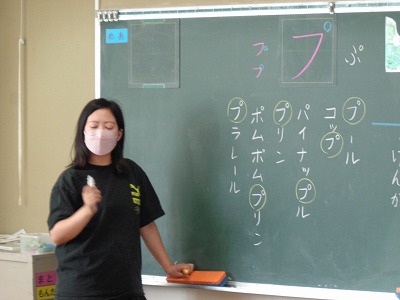 めあ
ぷ
プ
プ
プ
プール
コップ
パイナップル
プリン
ポムポムプリン
プラレール
まと
もんだ